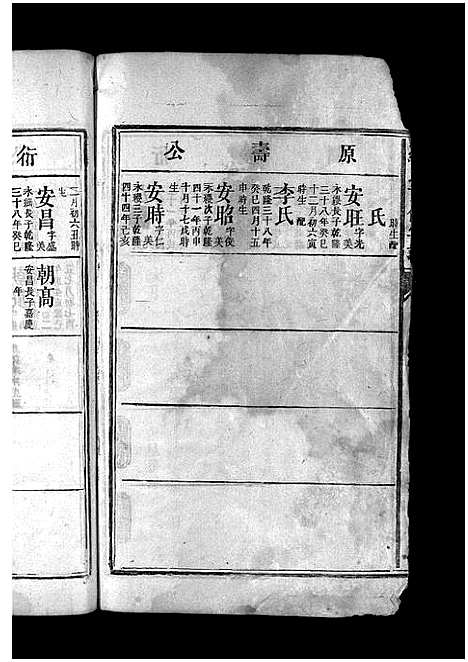 原壽公
時生配
氏
安旺字光美
永稷長子乾隆
三十八年癸巳
十二月初六寅
時生 配
李氏
乾隆三十八年
癸巳四月十五
申時生
安昭字俊美
永稷次子乾隆
四十一年丙申
十月十七戌時
生
安時字仁美
永稷三子乾隆
四十四年己亥
衍
二月初六丑時
生
安昌字盛美
長子乾隆
三十八年癸巳
朝高
安昌長子嘉慶